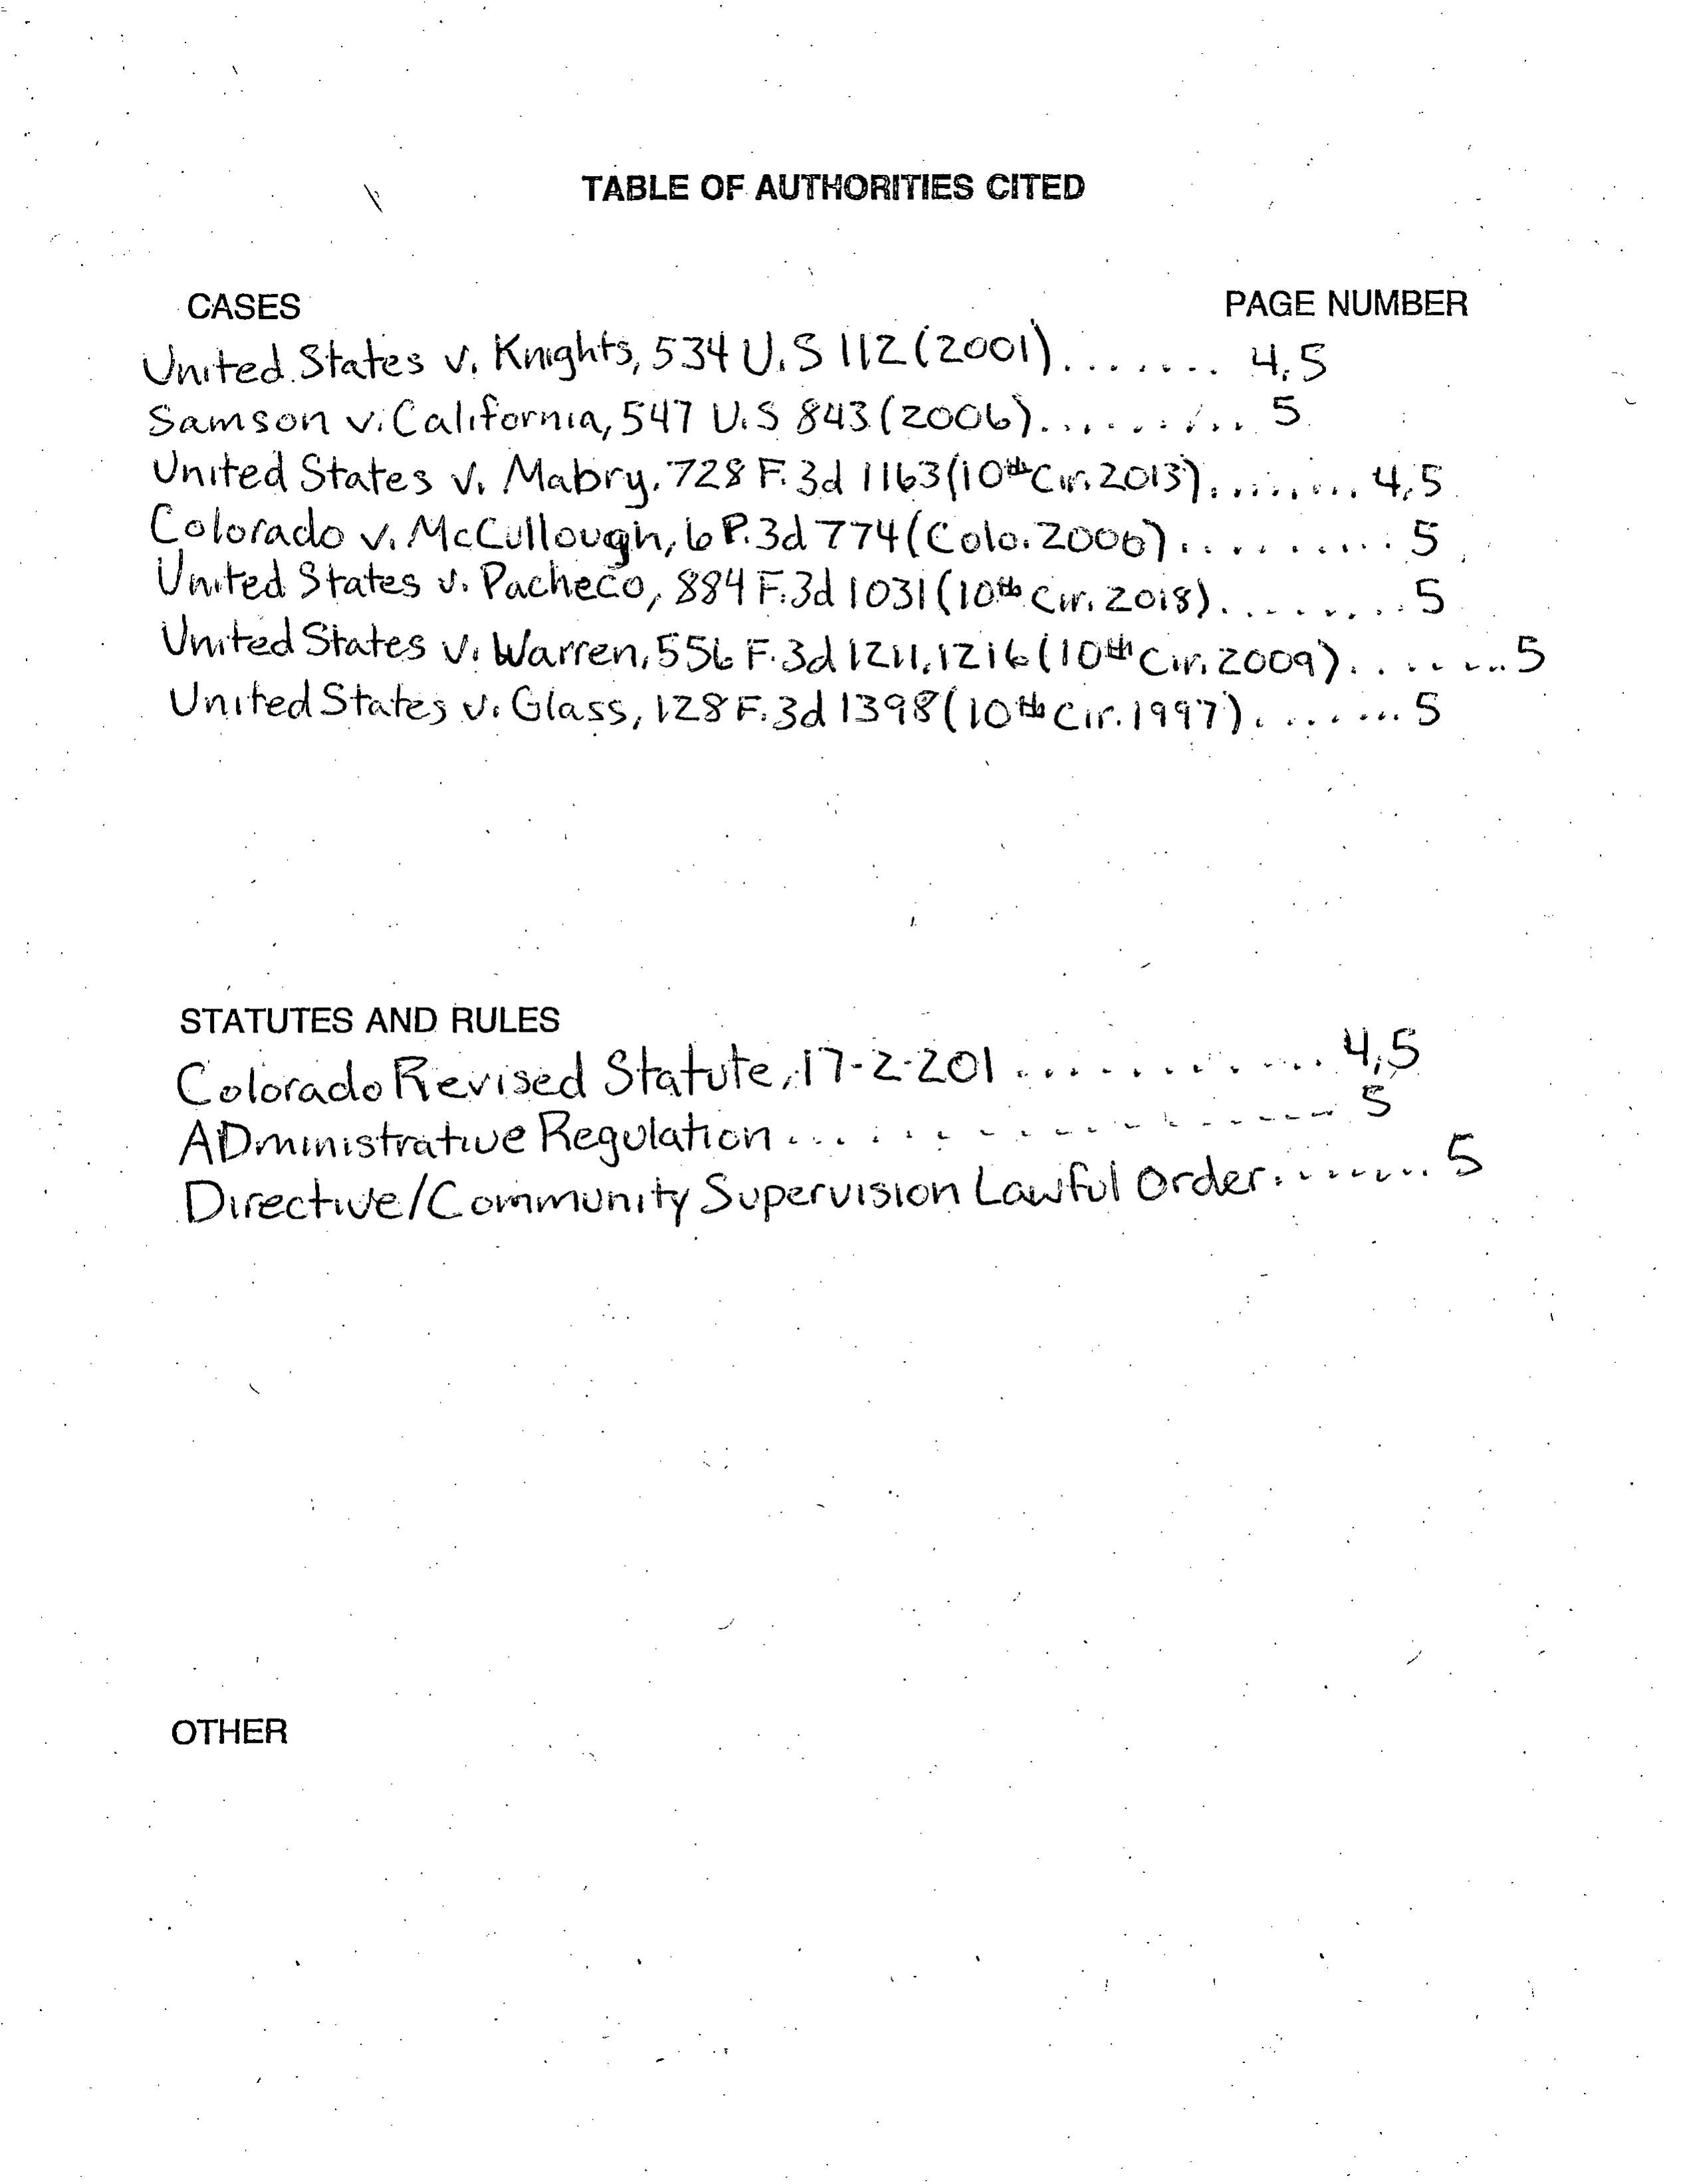 TABLE OF AUTHORITIES CITED
CASES PAGE NUMBER
United States v. Knights, 534 U.S 112 (2001)........ 4,5
Samson v. California, 547 U.S 843 (2006).......... 5
United States v. Mabry, 728 F.3d 1163 (10th Cir. 2013)......... 4,5
Colorado v. McCullough, 6 P.3d 774 (Colo. 2000).......... 5
United States v. Pacheco, 884 F.3d 1031 (10th Cir. 2018)........ 5
United States v. Warren, 556 F.3d 1211, 1216 (10th Cir. 2009)........ 5
United States v. Glass, 128 F.3d 1398 (10th Cir. 1997)........ 5
STATUTES AND RULES
Colorado Revised Statute, 17-2-201............ 4,5
ADministrative Regulation................. 5
Directive/Community Supervision Lawful Order........ 5
OTHER